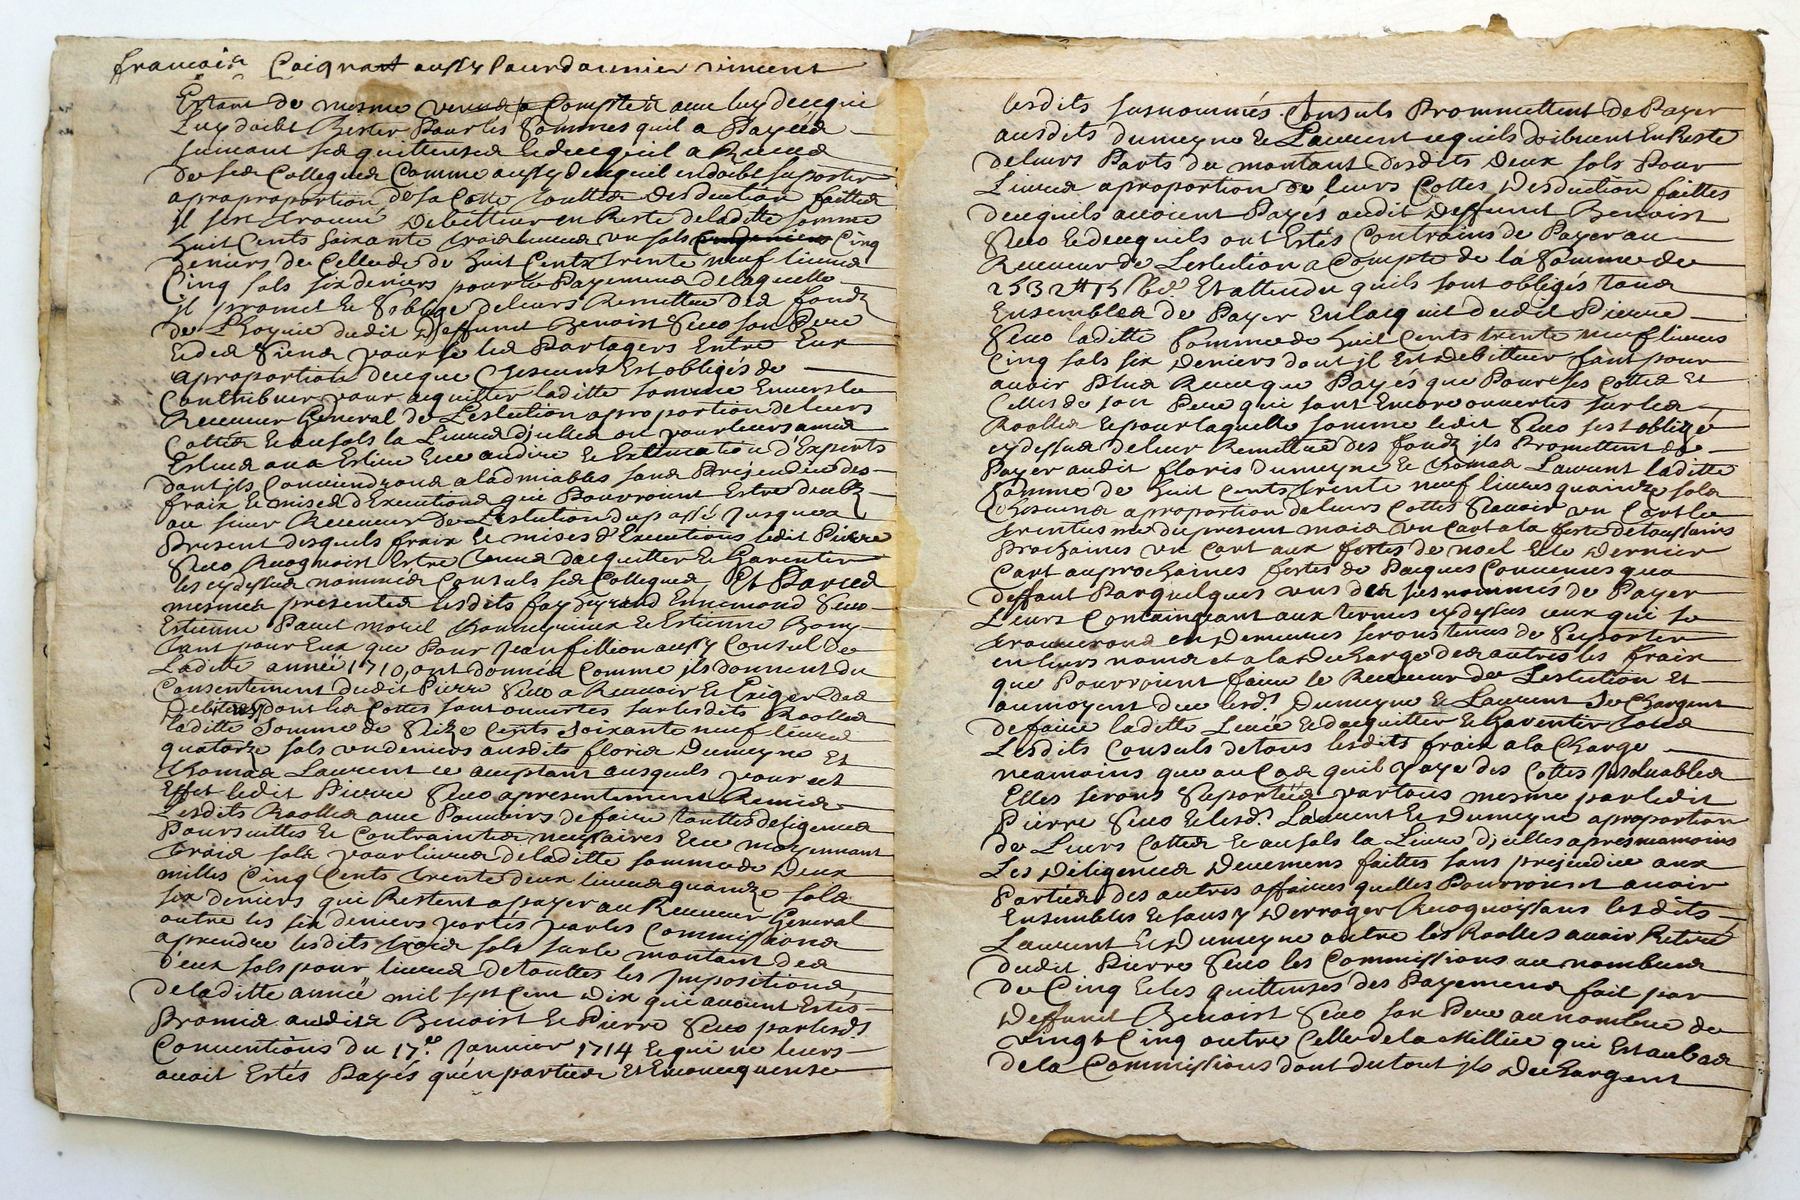 francois Coignart aussy Pourdounnier vincent
Estant de mesme venud a Compte avec luy decequil
Luy doibt Rester Pour les Sommes quil a Payeés
suivant ses quittences Et decequil a Receud
de ses Collegues Comme aussy decequil en doibt suporter
aproproportion de sa Cotte touttes desduction faittes
il sest trouvé Debitteur en Reste de laditte somme
huit Cents soixante trois livres un sols Cinq
deniers de Celle de de huit Cents trente neuf livres
Cinq sols six deniers pour le Payement de laquelle
il promet Et soblige de leurs Remettre des fonds
de L'hoyrie dudit Deffunct Benoist Seco son Pere
Et des siens pour se les Partagers Entre Eux
aproportion decque Chescuns Est obligés de
Contribuer pour acquitter laditte somme Envers le
Receveur General de Leslection aproportion de leurs
Cottes Et au sols la Livre d'jcelles ou pour leurs
Estime Et Extimation d'Experts
dont jls Conviendrons a ladmiables sans Prejeudice des
fraix Et mises d'Executions qui Pourront Estre deubz
au sieur Receveur de Leslection du passé Jusques a
Present desquels fraix Et mises d'Executions ledit Pierre
Seco Recognoist Estre tenud dacquitter Et Garentir
les cydessus nommées Consuls ses Collegues Et Par ces
mesmes presentes lesdits Ennemond Seco
Estienne Pacet morel Et Estienne Bony
tant pour Eux que Pour Jean fillion aussy Consul de
Laditte anneé 1710, ont donnés Comme jls donnent du
Consentement dudit Pierre Seco a Recevoir Et Exiger des
Debiteurs dont les Cottes sont ouvertes sur lesdits Roolles
laditte Somme de Seize Cents soixante neuf livres
quatorze sols un deniers ausdits floris Dumeyne Et
thomas Laurent ce aceptant ausquels pour cet
Effet ledit Pierre Seco apresentement Remis
Lesdits Roolles avec Pouvoirs de faire touttes deligences
Poursuittes Et Contraintes necessaires Et ce moyennant
trois sols pour livres de laditte somme de Deux
milles Cinq Cents trente deux livres quainze sols
six deniers qui Restent a payer au Receveur General
outre les six deniers portés par les Commissions
aprendre lesdits trois sols sur le montant des
deux sols pour livres de touttes les Impositions
de laditte anneé mil sept Cent Dix qui avoient Estés
Promis audits Benoist Et Pierre Seco par les ds
Conventions du 17e Janvier 1714 Et qui ne leurs
avoit Estés Payés qu'en parties Et En concequense
lesdits susnommés Consuls Promettent de Payer
ausdits dumeyne Et Laurent ce quils doibvent En Reste
de leurs Parts du montant desdits Deux sols Pour
Livres aproportion de leurs Cottes Desduction faittes
decequils avoient Payés audit Deffunct Benoist
Seco Et decequils ont Estés Contrains de Payer au
Receveur de Leslection a Compte de la Somme de
2532tt 15s 6d Et attendu quils sont obligés tous
Ensembles de Payer En lacquit dudit Pierre
Seco laditte Somme de huit Cents trente neuf livres
Cinq sols six deniers dont jl Est Debitteur faut pour
avoir Plus Receu que Payés que Pour ses Cottes Et
Celles de son Pere qui sont Encore ouvertes sur les
Roolles Et pour laquelle somme ledit Seco sest obligé
cydessus de leur Remettre des fonds jls Promettent de
Payer audit floris Dumeyne Et thomas Laurent laditte
somme de huit Cents trente neuf livres quainze sols
Chescuns aproportion de leurs Cottes Scavoir un Cart le
trentiesme du present mois un Cart a la feste de toussaints
Prochaines un Cart aux festes de noel Et le Dernier
Cart auprochaines festes de Pacques Convenus que
deffaut Par quelques uns des susnommés de Payer
Leurs Containgant aux termes cydessus ceux qui se
trouveront en Demeures seront tenus de Suporter
en leurs noms et a la descharge des autres les fraix
que Pourroient faire le Receveur de Leslection Et
aumoyent dece les ds Dumeyne Et Laurent Se Chargent
de faire laditte Leveé Et dacquitter Et Garentir tous
Lesdits Consuls de tous lesdits fraix a la Charge
neamoins que au Cas quil y aye des Cottes Insolvables
Elles serons suportées par tous mesme par ledit
Pierre Seco Et les ds Laurent Et Dumeyne aproportion
de Leurs Cottes Et au sols la Livre d'jcelles apres neamoins
Les Deligences Deuement faittes sans prejeudice aux
Parties des autres affaires quelles Pourroient avoir
Ensembles Et sans y Derroger Recognoissans lesdits
Laurent Et Dumeyne outre les Roolles avoir Retiré
dudit Pierre Seco les Commissions au nombre
de Cinq Et les quittenses des Payemens fait par
Deffunct Benoist Seco son Pere au nombre de
vingt Cinq outre Celle de la Millice qui Est au bas
de la Commissions dont du tout jls Deschargent